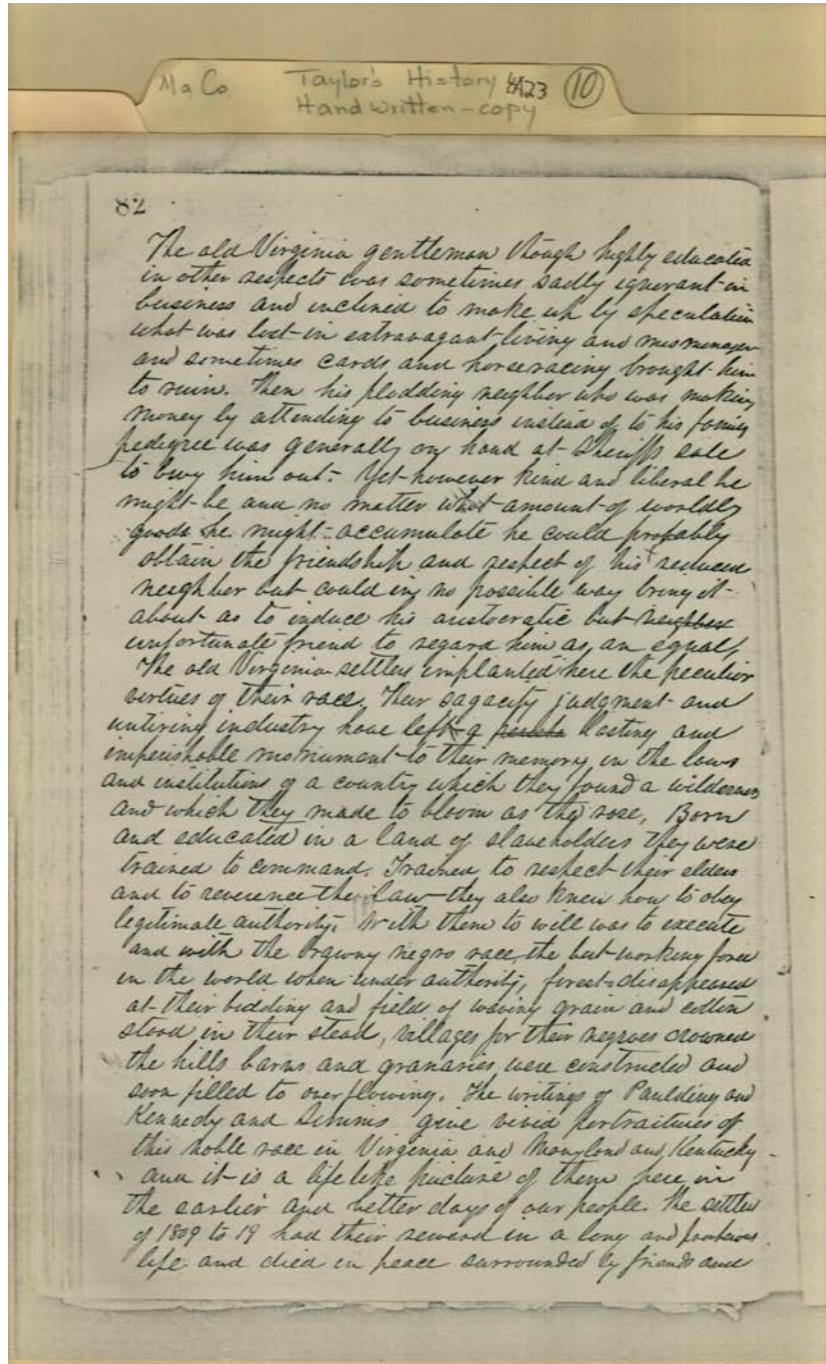 Ma Co Taylor's History 4A23 10
Handwritten-copy
82
The old Virginia gentleman though highly educated
in other respects was sometimes sadly ignorant in
business and inclined to make up by speculation
what was lost in extravagant living and
and sometimes cards and horseracing brought him
to ruin. Then his plodding neighbor who was making
money by attending to business instead of to his family
pedigree was generally on hand at Sheriffs sale
to buy him out. Yet however kind and liberal he
might be and no matter what amount of worldly
goods he might accumulate he could probably
obtain the friendship and respect of his reduced
neighbor but could in no possible way bring it
about as to induce his aristocratic but neighbor
unfortunate friend to regard him as an equal,
The old Virginia settlers implanted here the peculiar
virtues of their race. Their sagacity judgment and
untiring industry have left a lasting and
imperishable monument to their memory in the laws
and institutions of a country which they found a wilderness
and which they made to bloom as the rose, Born
and educated in a land of slaveholders they were
trained to command. Trained to respect their elders
and to reverence the law they also knew how to obey
legitimate authority, With them to will was to execute
and with the brawny negro race, the best working force
in the world when under authority, forests disappeared
at their bidding and field of waving grain and cotton
stood in their stead, villages for their negroes crowned
the hills barns and granaries, were constructed and
soon filled to overflowing. The writings of Paulding and
Kennedy and Simms give vivid portraitures of
this noble race in Virginia and Maryland and Kentucky
and it is a life like picture of them here in
the earlier and better days of our people. The settlers
of 1809 to 19 had their reward in a long and
life and died in peace surrounded by friends and